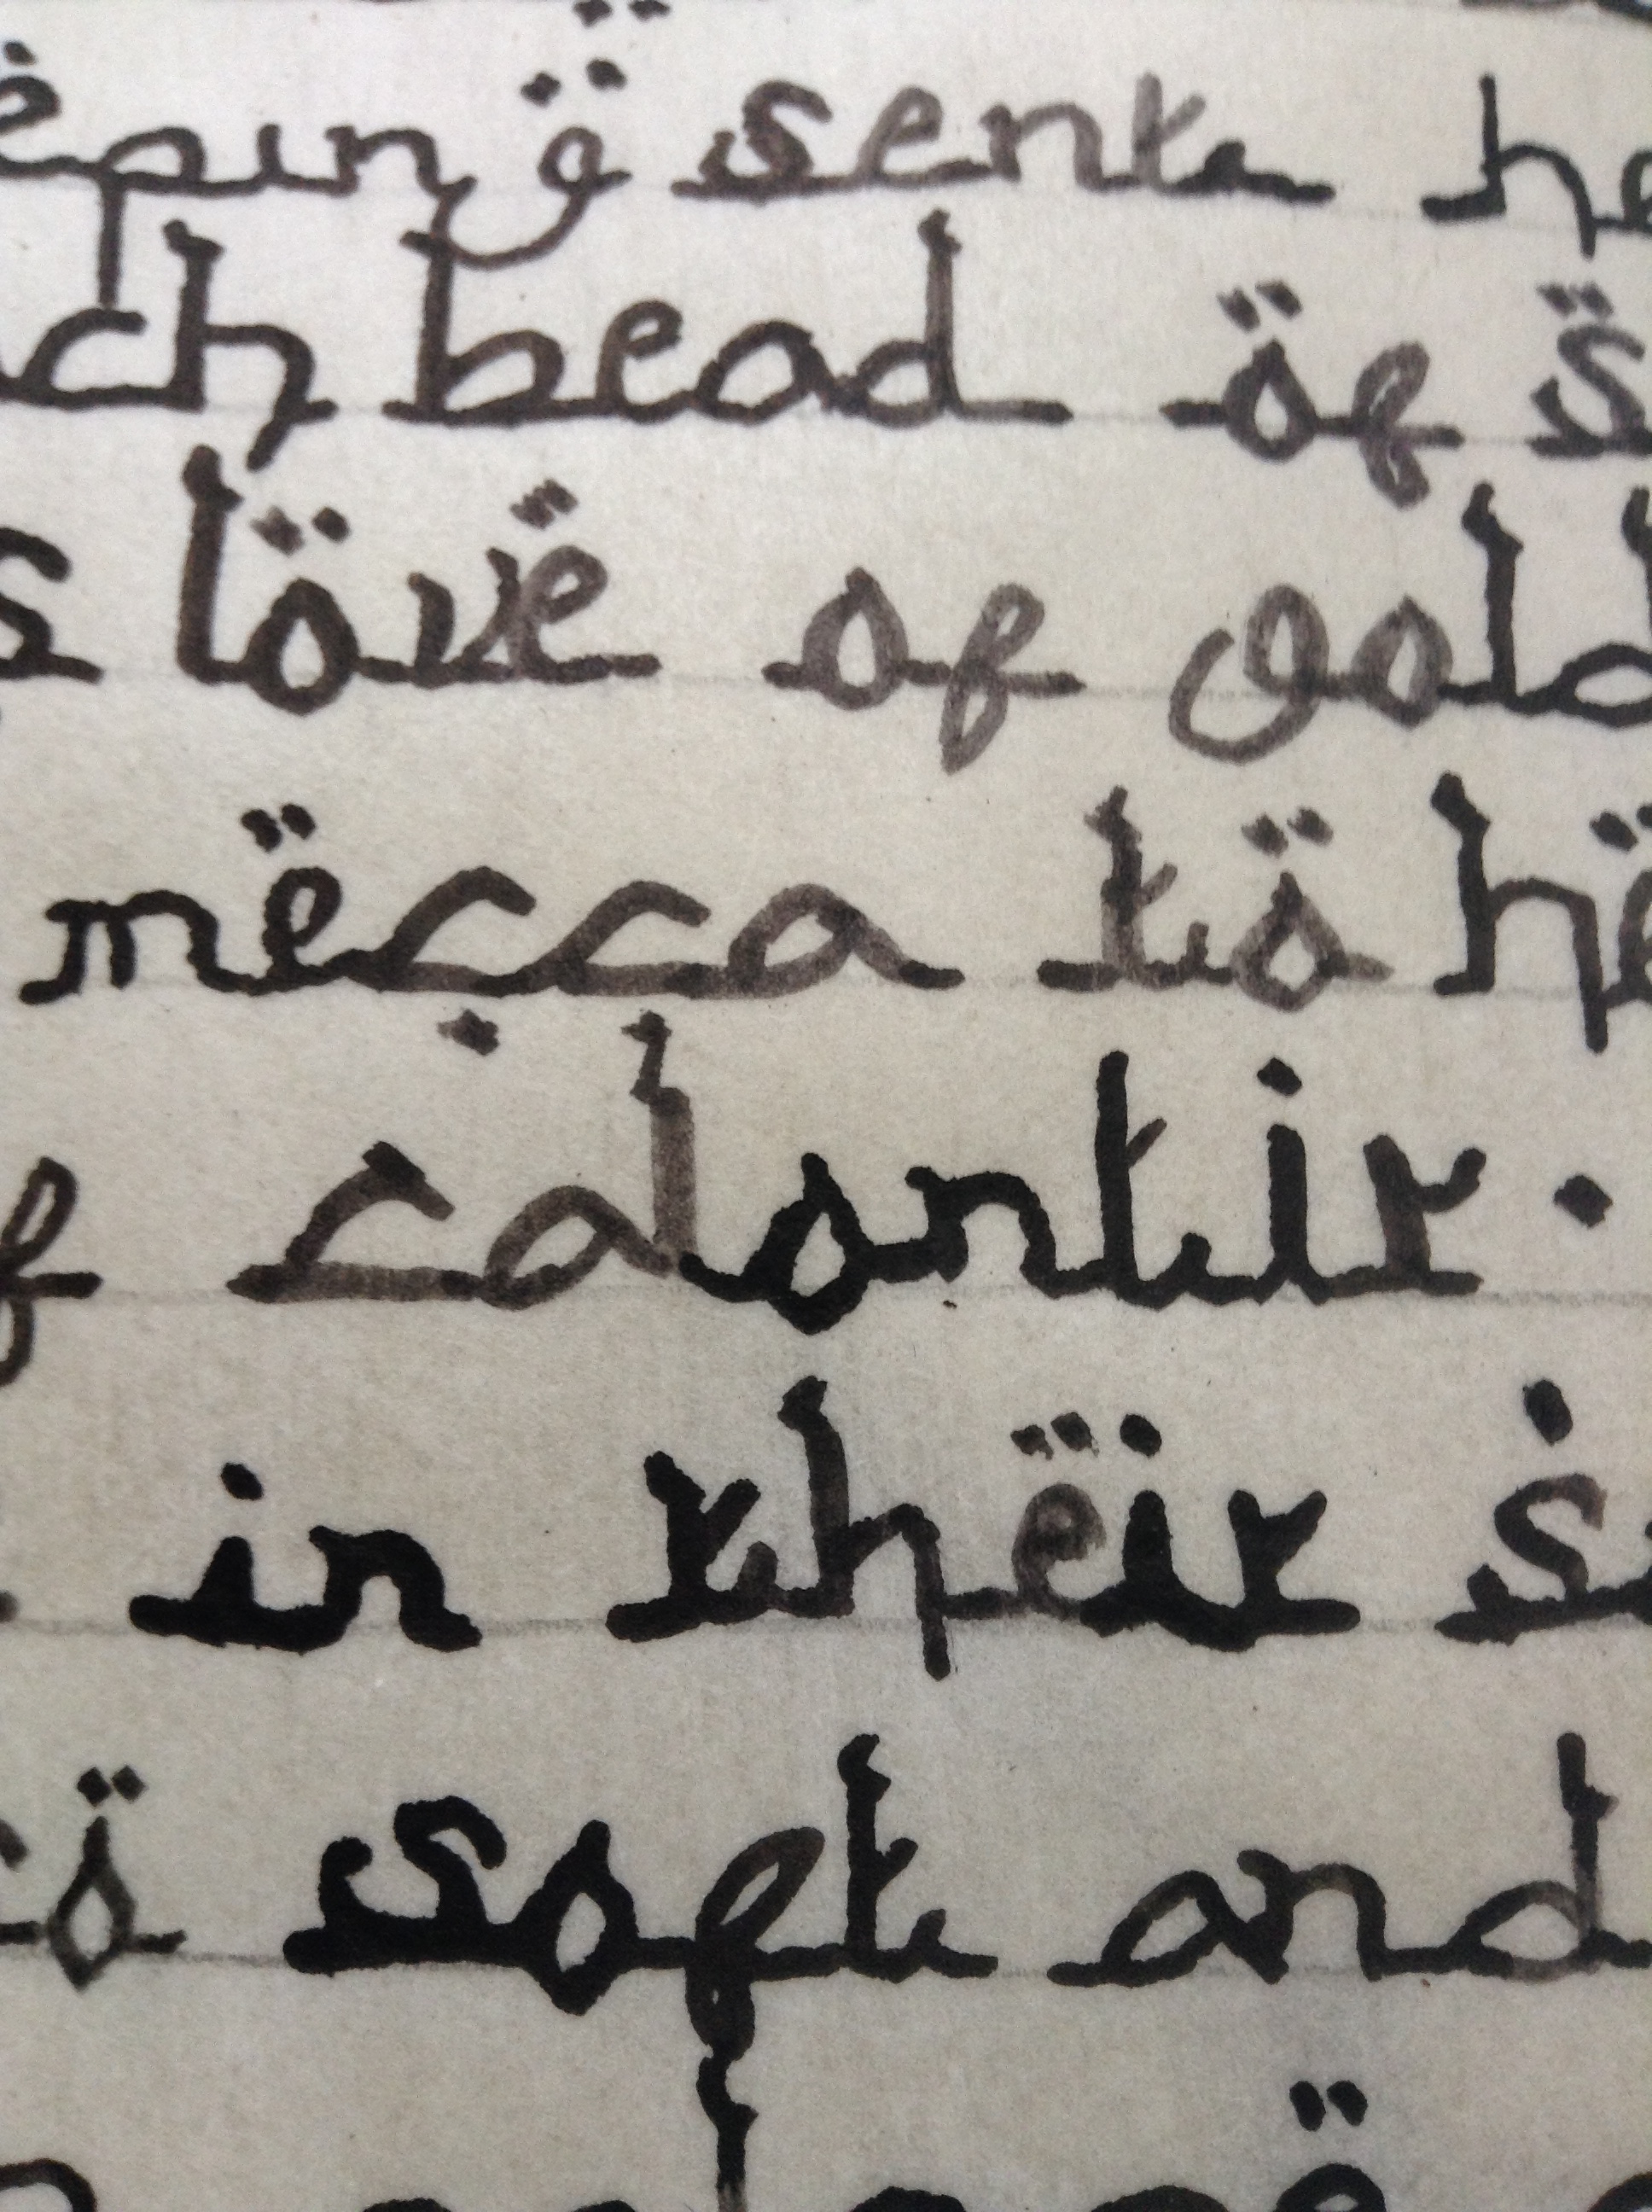 eping sent he
ch bead öf s
s lövë of gold
mëcca tö hë
f calontir.
in thëir s
soft and